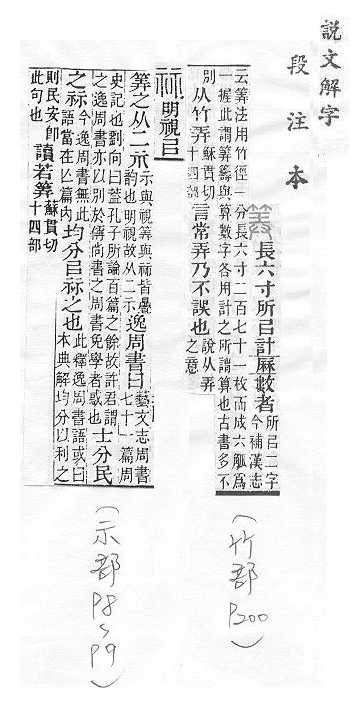 說文解字
段注本
筭 長六寸所㠯計厤數者 所㠯二字
今補漢志
云筭法用竹徑一分長六寸二百七十一枚而成六觚爲
一握此謂筭籌與算數字各用計之所謂算也古書多不
別 从竹弄 蘇貫切
十四部 言常弄乃不誤也 說从弄
之意
(竹部 P200)
祘 明視㠯
筭之从二示 示與視筭與祘皆㬪
韵也明視故从二示 逸周書曰 藝文志周書
七十一篇周
史記也劉向曰蓋孔子所論百篇之餘故許君謂
之逸周書亦以別於傳尚書之周書免學者惑也 士分民
之祘 今逸周書無此
語當在亡篇內 均分㠯祘之也 此釋逸周書語或曰
本典解均分以利之
則民安卽
此句也 讀若筭 蘇貫切
十四部
(示部 P8~P9)